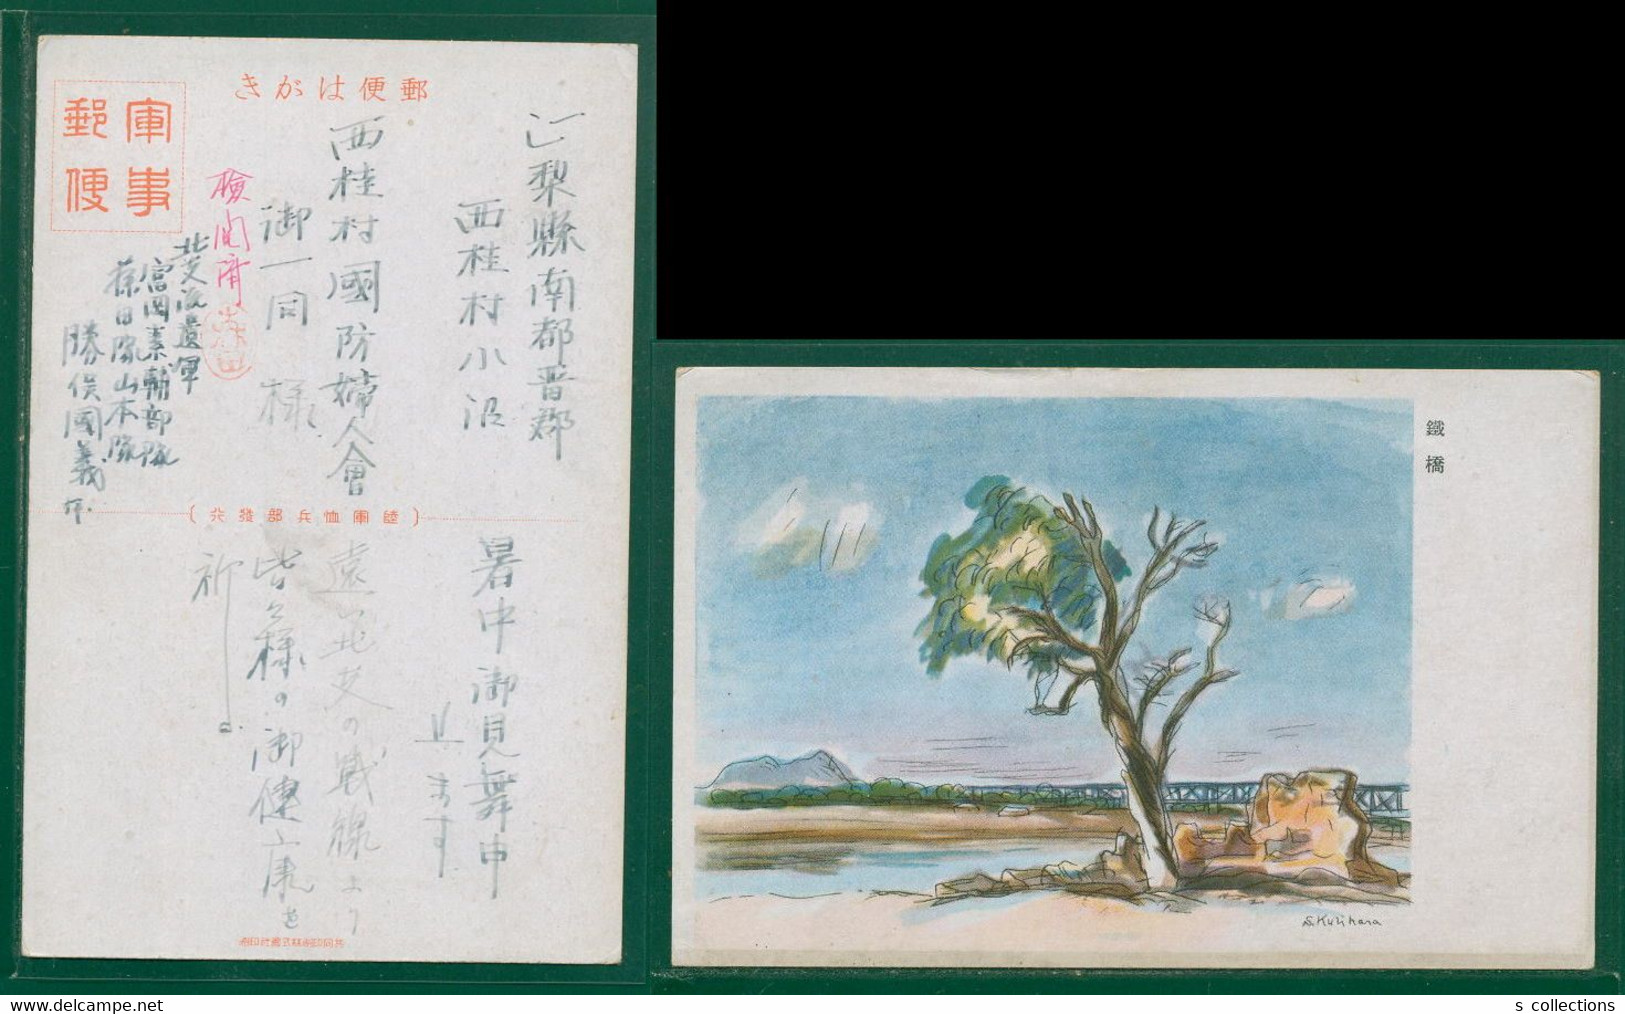 郵便はがき
軍事
郵便
山梨縣南都晋郡
西桂村小沼
西桂村國防婦人會
御一同様
檢閲済
北支派遣軍
富岡素輔部隊
山本隊
勝俣國義
(陸軍恤兵部發行)
暑中御見舞申
上ます
遠い北支の戦線より
皆々様の御健康を
祈る。
鐵橋
S.Kurihara
s collections